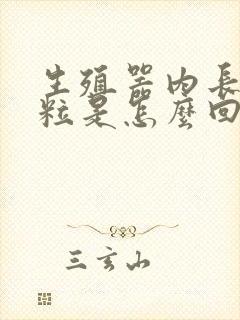 生殖器内長
粒是怎麼回
三玄山